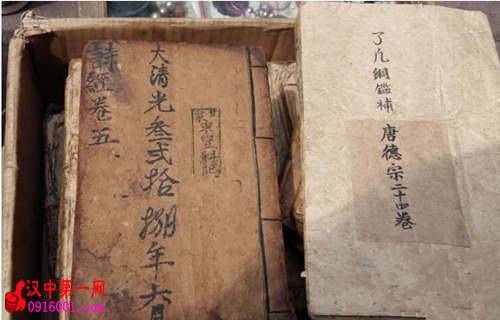 大清光叁弍拾捌年六月
詩經卷五
了凡綱鑑補
唐德宗二十四卷
汉中第一网
0916001.com